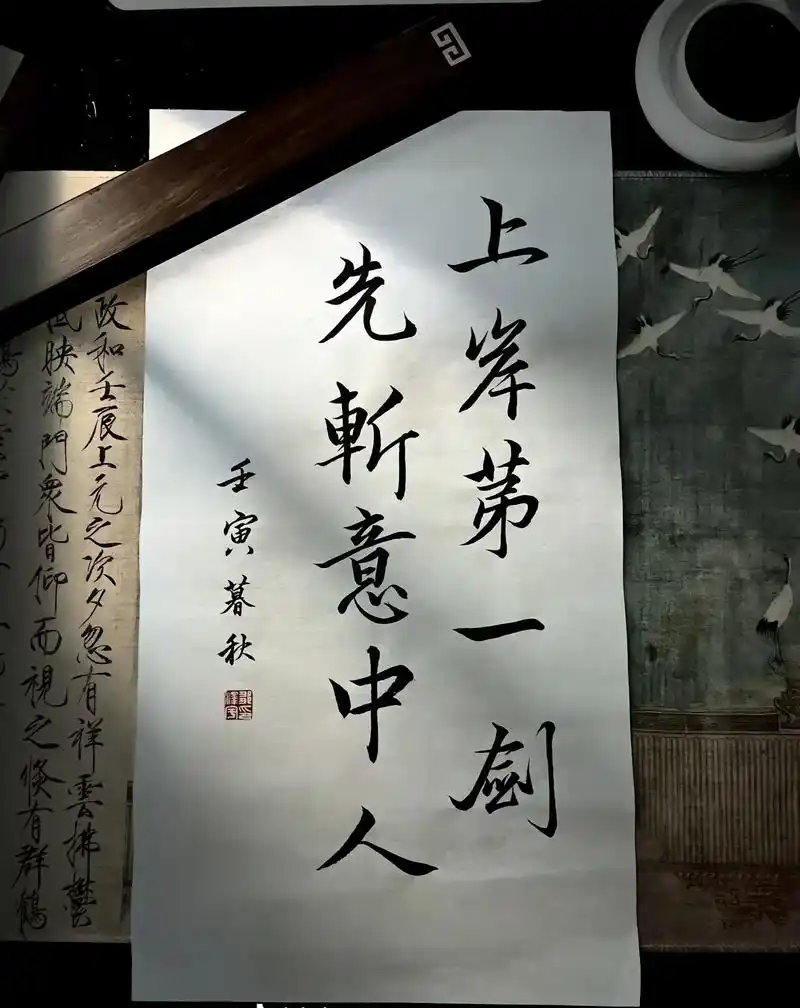 上岸第一劍
先斬意中人
壬寅暮秋
政和壬辰上元之次夕忽有祥雲拂鬱
映端門衆皆仰而視之倏有群鶴